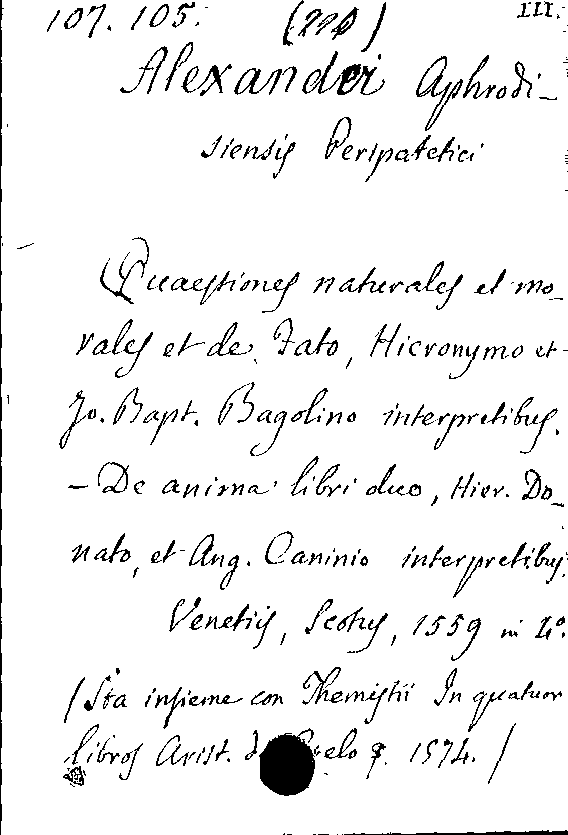 107. 105. (220) III.
Alexandri Aphrodi-
siensis Peripatetici
Quaestiones naturales et mo-
rales et de Fato, Hieronymo et
Jo. Bapt. Bagolino interpretibus.
- De anima libri duo, Hier. Do-
nato, et Ang. Caninio interpretibus
Venetiis, Scotus, 1559 in 4°.
(Sta insieme con Themistii In quatuor
libros Arist. de 1574.)